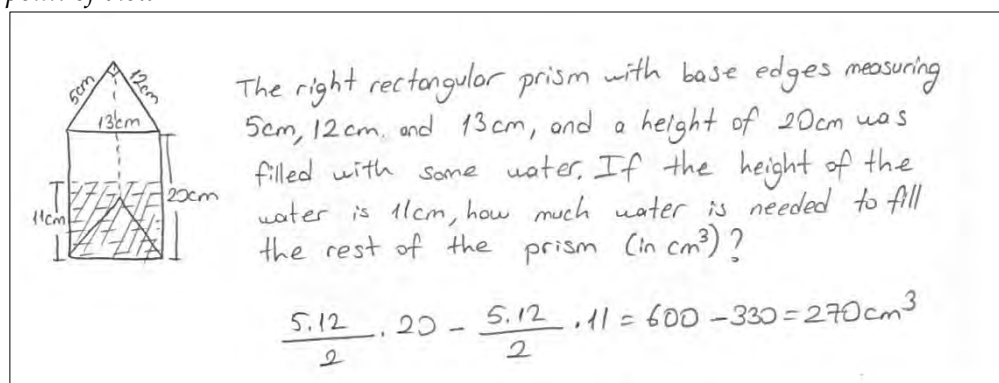 5cm
12cm
13cm
20cm
11cm
The right rectangular prism with base edges measuring
5cm, 12cm, and 13cm, and a height of 20cm was
filled with some water. If the height of the
water is 11cm, how much water is needed to fill
the rest of the prism (in cm³)?
5.12/2 . 20 - 5.12/2 . 11 = 600 - 330 = 270cm³